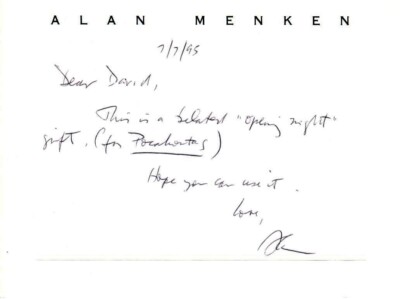 ALAN MENKEN
7/7/95
Dear David,
This is a belated "opening night"
gift. (for Pocahontas)
Hope you can use it.
Love,